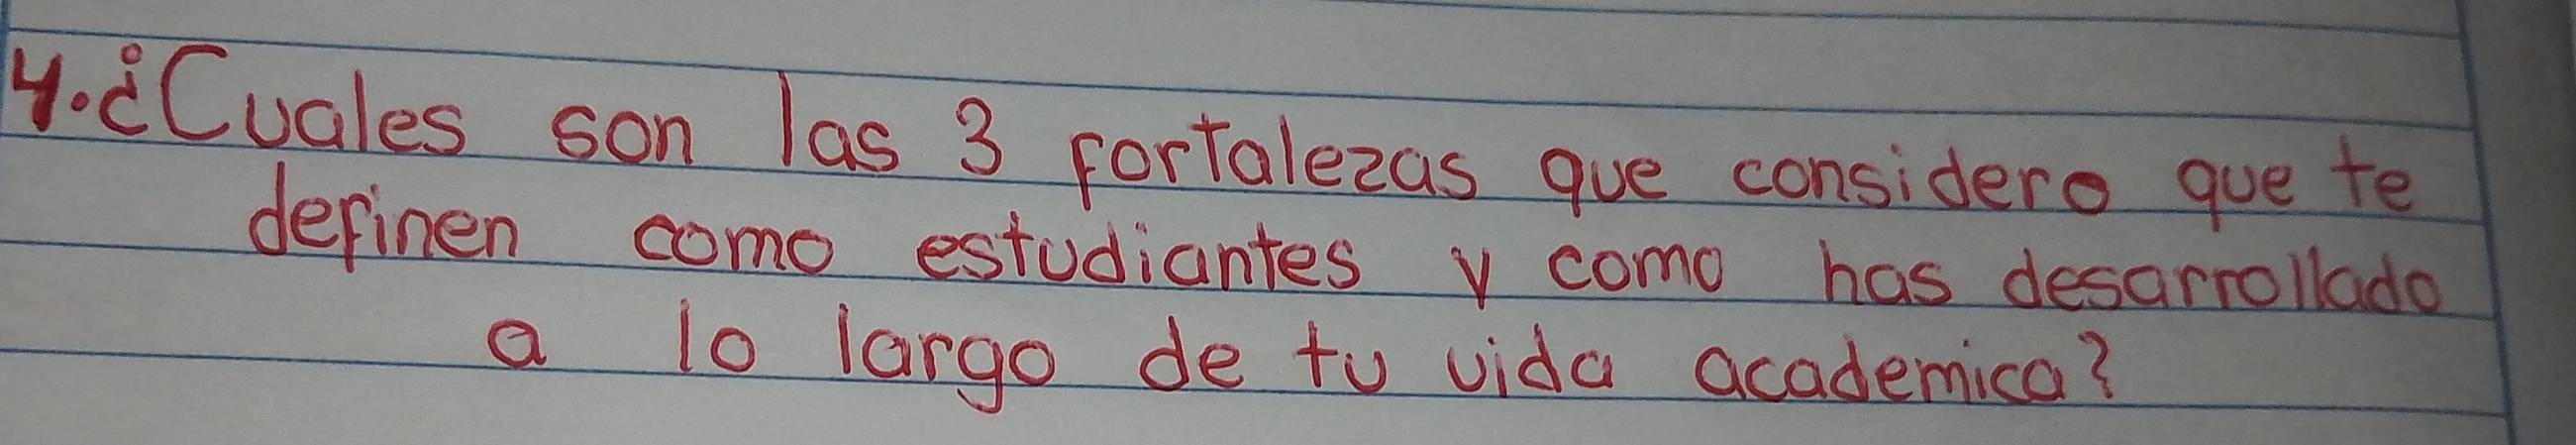 4. ¿Cuales son las 3 fortalezas que considero que te
definen como estudiantes y como has desarrollado
a lo largo de tu vida academica?